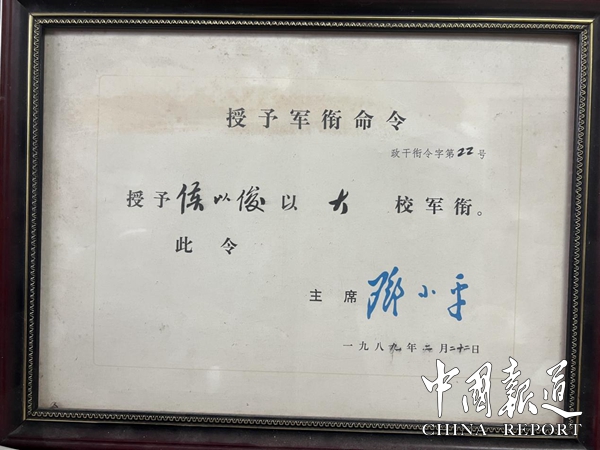 授予军衔命令
政干衔令字第22号
授予侯以俊以大校军衔。
此令
主席 邓小平
一九八九年二月二十二日
中国报道
CHINA REPORT